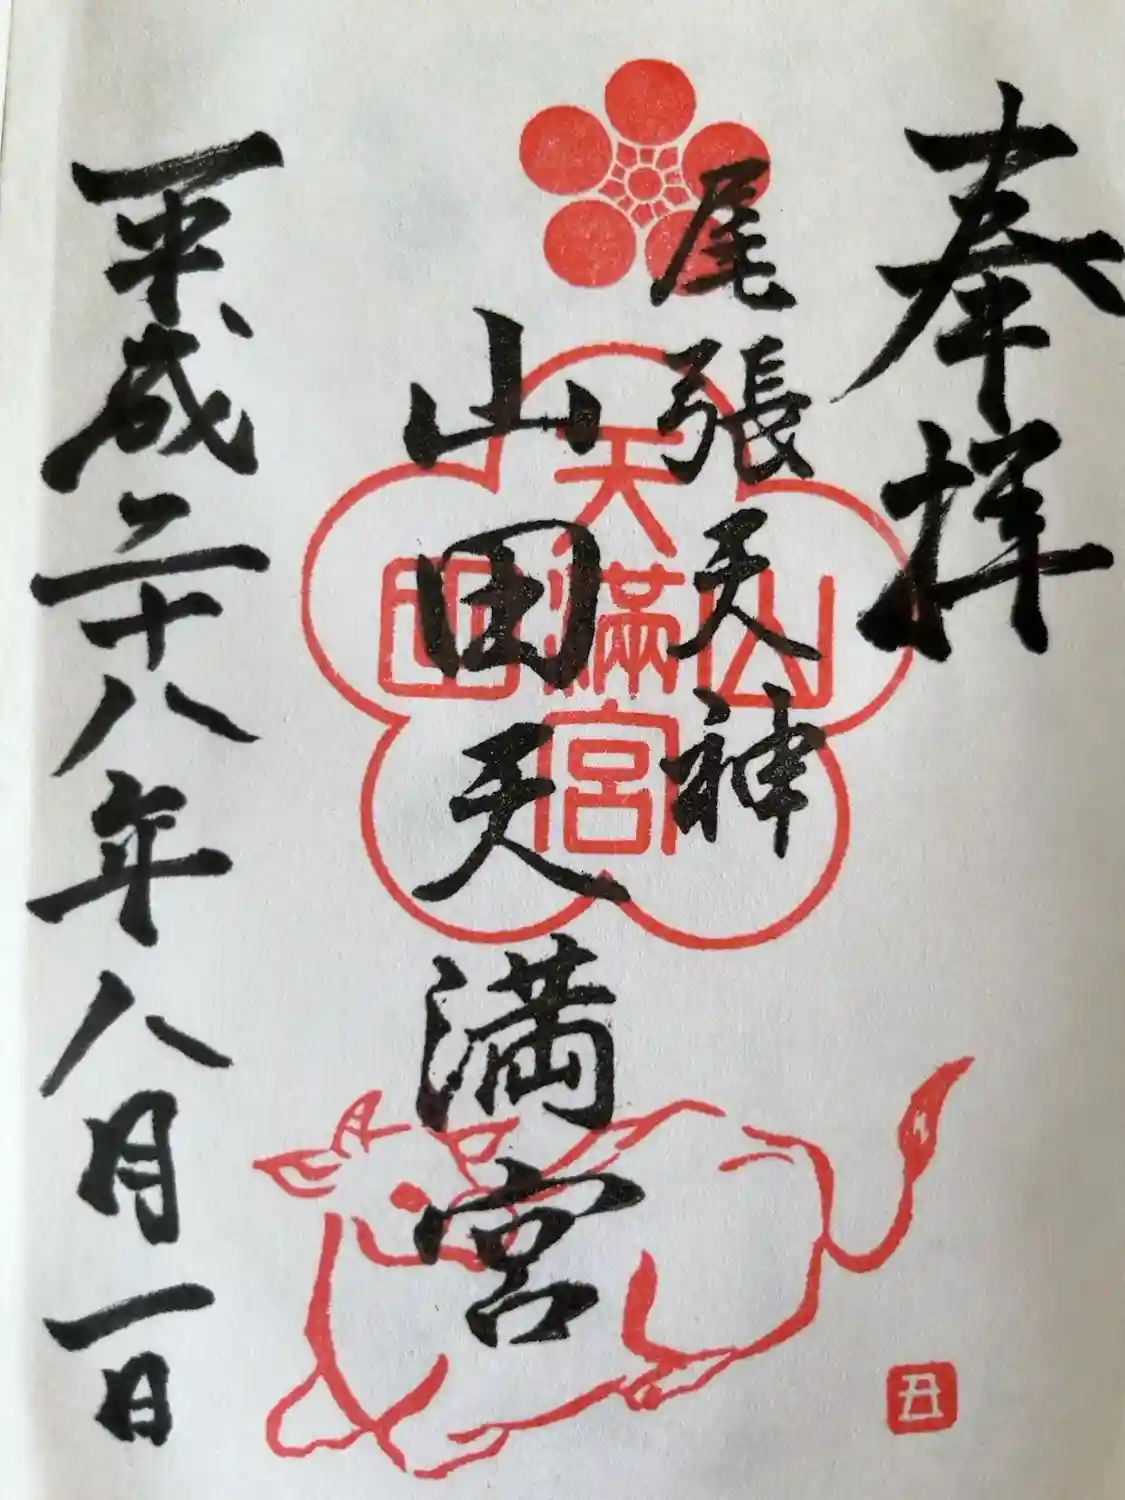 奉拝
尾張天神
山田天満宮
平成二十八年八月一日
山田
天満宮
丑